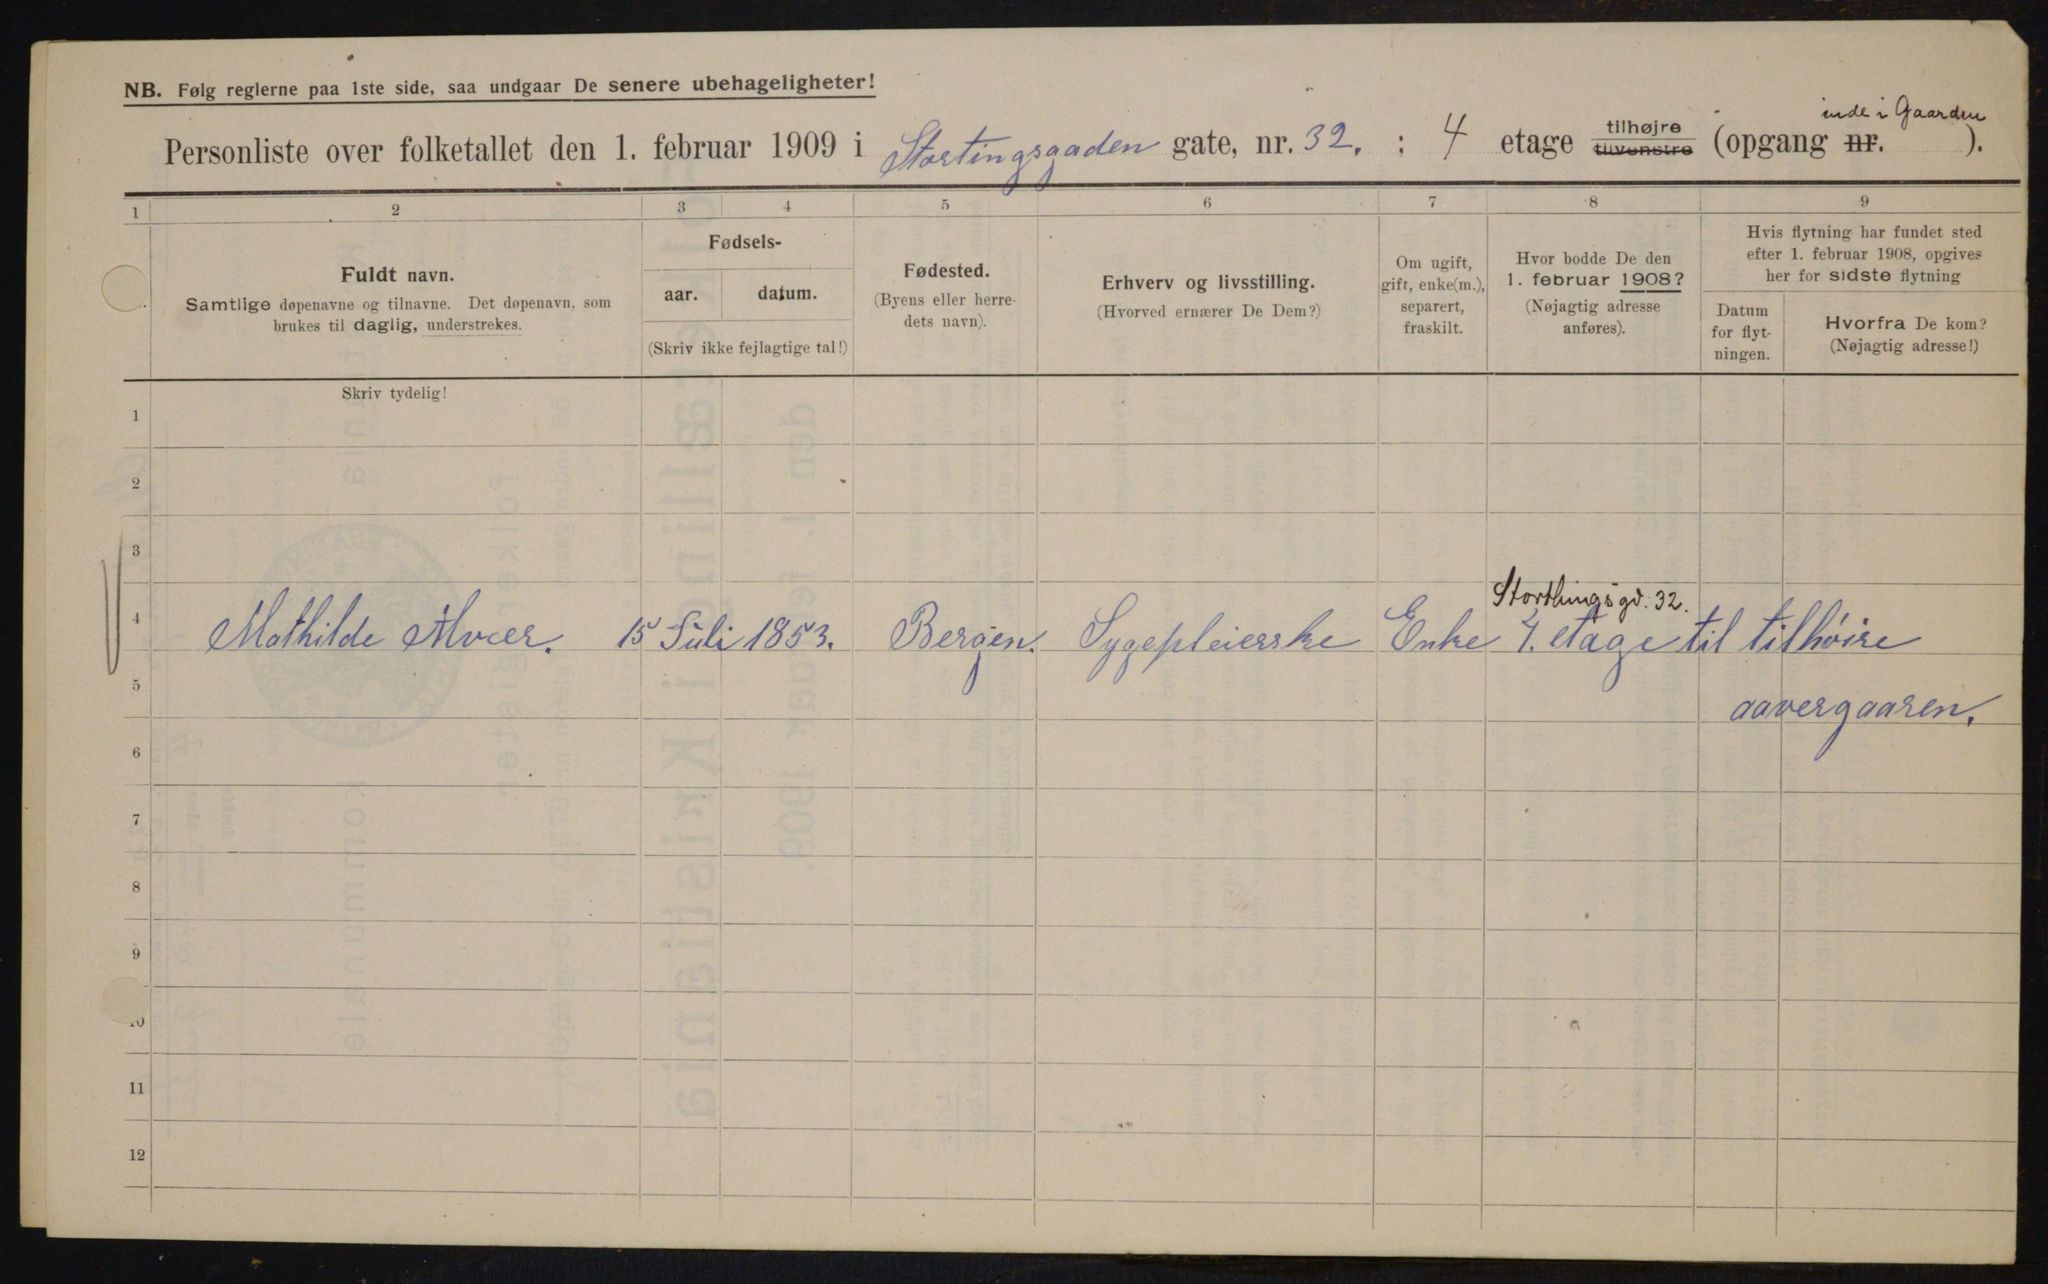 NB. Følg reglerne paa 1ste side, saa undgaar De senere ubehageligheter!
inde i Gaarden
Personliste over folketallet den 1. februar 1909 i Stortingsgaden gate, nr. 32. ; 4 etage tilhøjre tilvenstre (opgang nr. ).
1 2 3 4 5 6 7 8 9
Fuldt navn.
Samtlige døpenavne og tilnavne. Det døpenavn, som
brukes til daglig, understrekes.
Fødsels-
aar. datum.
(Skriv ikke fejlagtige tal!)
Fødested.
(Byens eller herre-
dets navn).
Erhverv og livsstilling.
(Hvorved ernærer De Dem?)
Om ugift,
gift, enke(m.),
separert,
fraskilt.
Hvor bodde De den
1. februar 1908?
(Nøjagtig adresse
anføres).
Hvis flytning har fundet sted
efter 1. februar 1908, opgives
her for sidste flytning
Datum
for flyt-
ningen.
Hvorfra De kom?
(Nøjagtig adresse!)
Skriv tydelig!
1
2
3
Storthingsgd. 32.
4 Mathilde 15 Juli 1853. Bergen. Sygepleierske Enke 4. etage til tilhøire
5 aavergaaren.
6
7
8
9
10
11
12